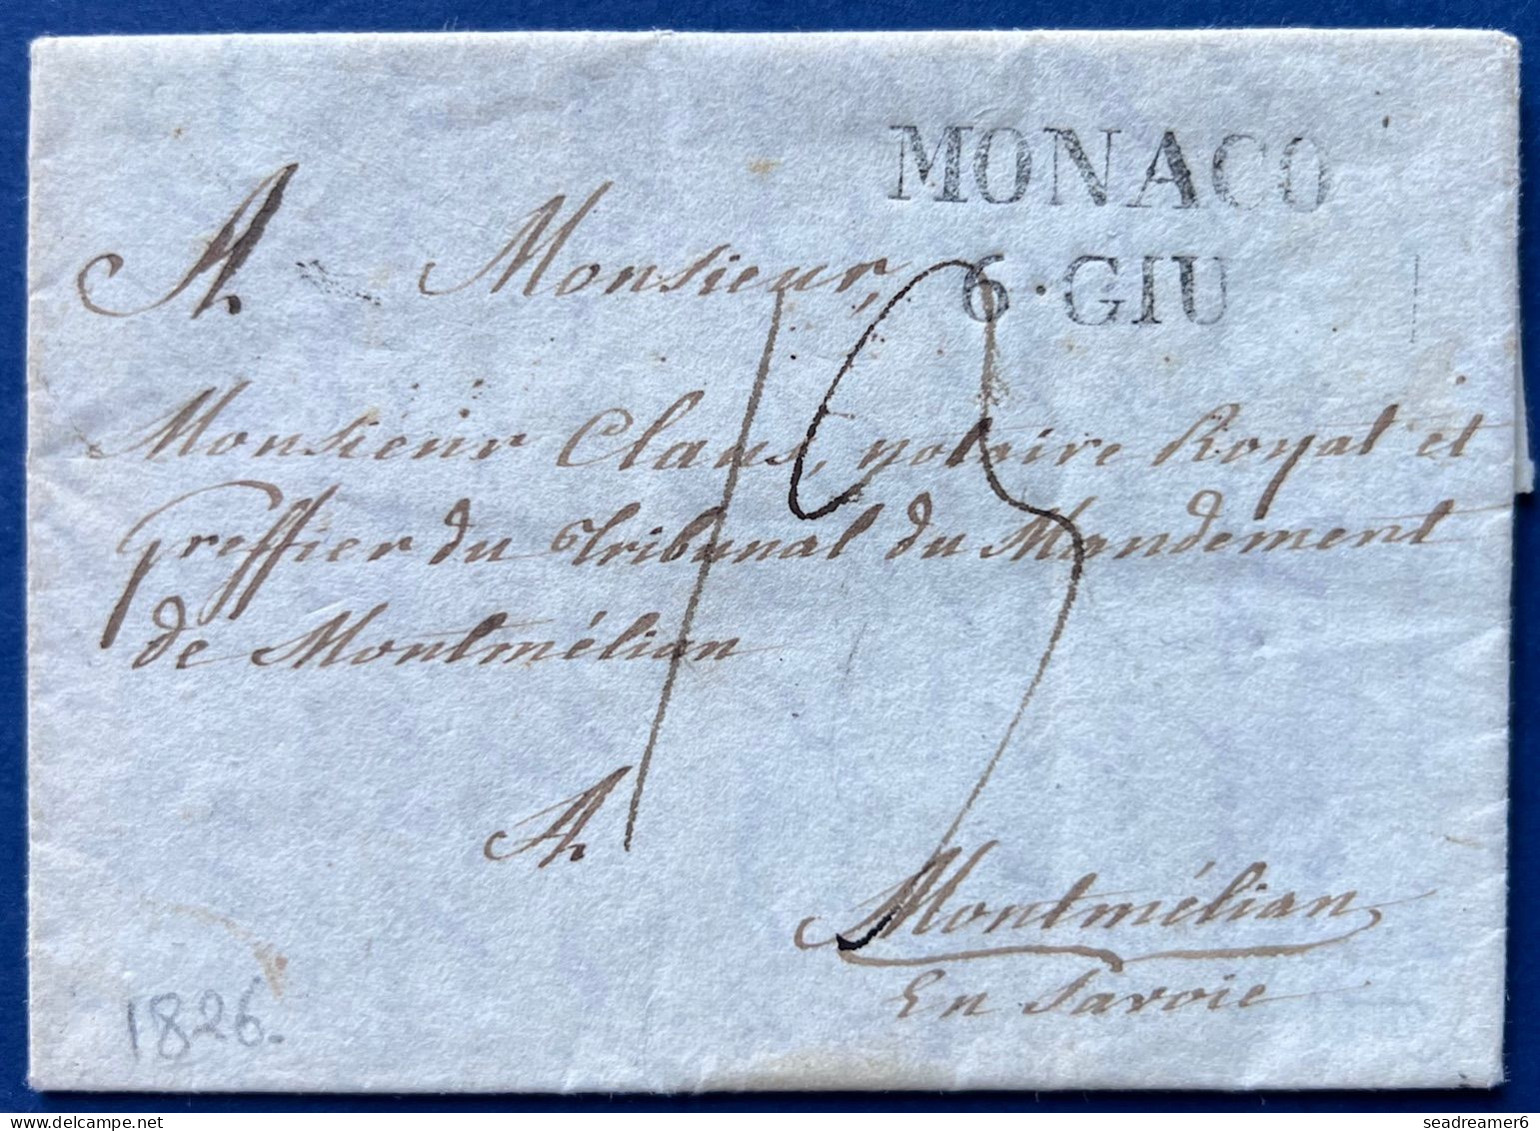 MONACO
6 · GIU
A Monsieur,
Monsieur Claus, notaire Royal et
Greffier du Tribunal du Mandement
de Montmélian
A
Montmélian,
En Savoie
1826.
seadreamer6 @ delcampe.net